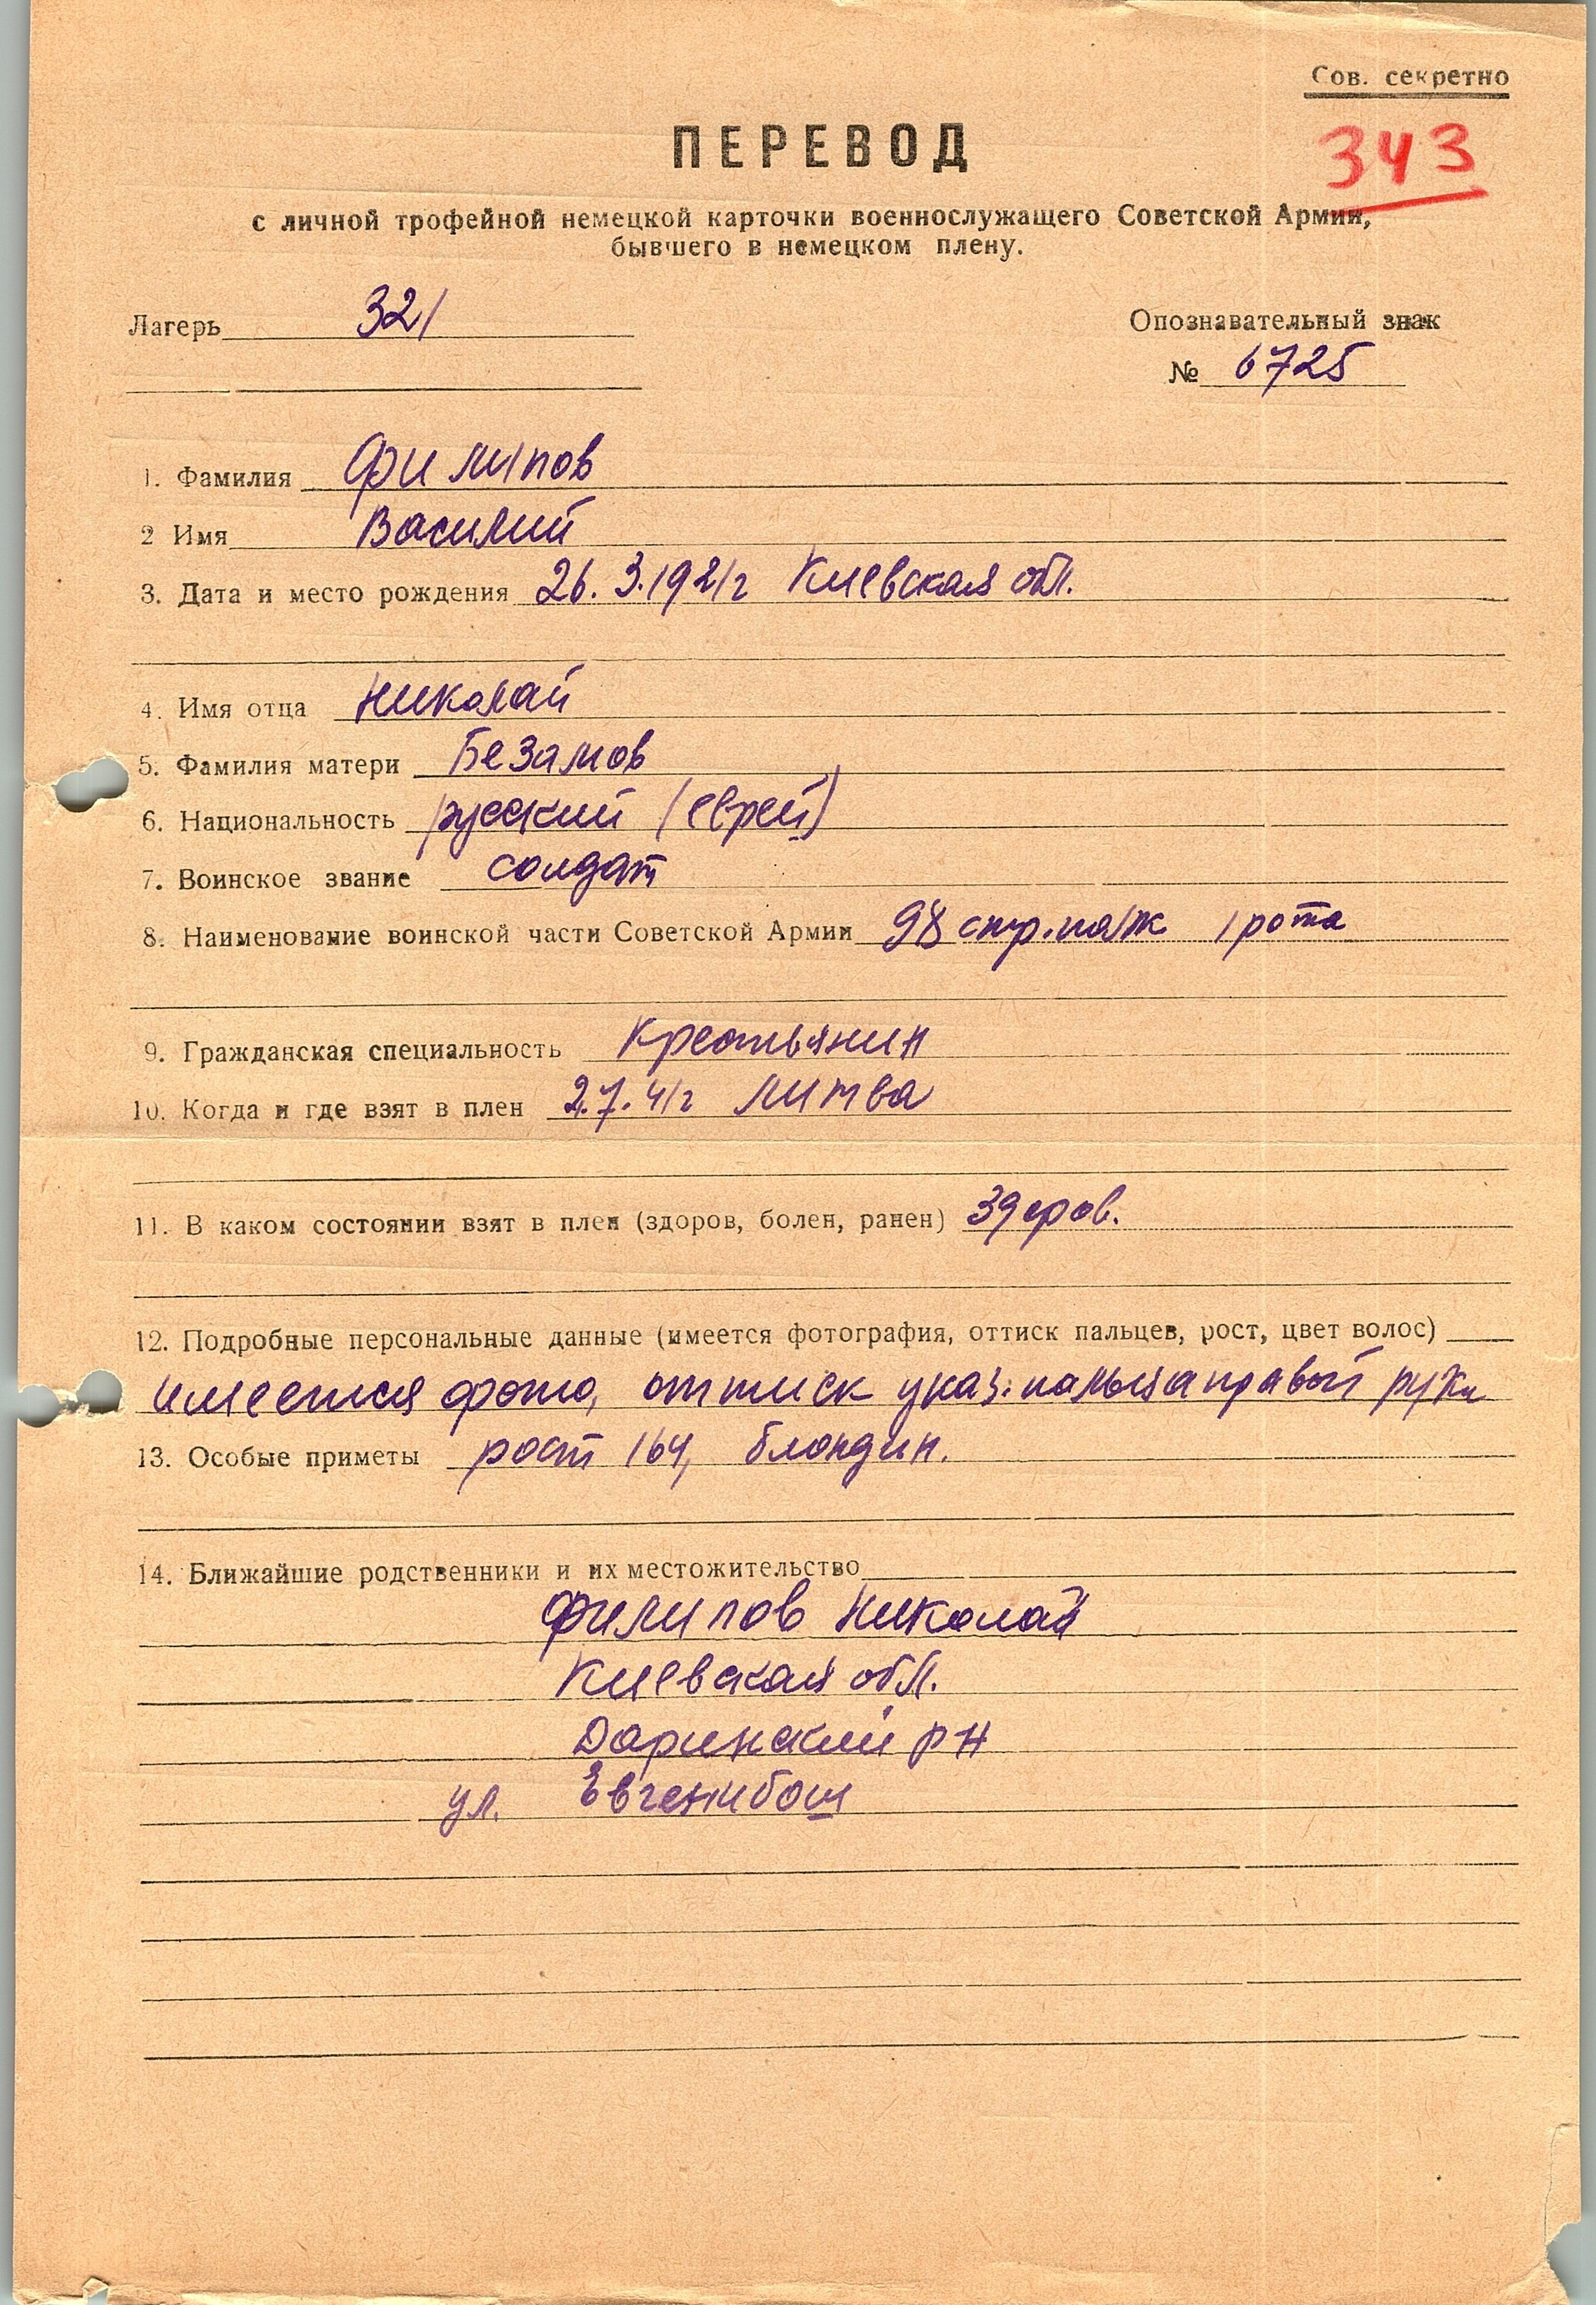 Сов. секретно
343
ПЕРЕВОД
с личной трофейной немецкой карточки военнослужащего Советской Армии,
бывшего в немецком плену.
Лагерь 321
Опознавательный знак
№ 6725
1. Фамилия Филипов
2 Имя Василий
3. Дата и место рождения 26.3.1921г Киевская обл.
4. Имя отца Николай
5. Фамилия матери Безамов
6. Национальность русский (еврей)
7. Воинское звание солдат
8. Наименование воинской части Советской Армии 98 стр.полк 1 рота
9. Гражданская специальность Крестьянин
10. Когда и где взят в плен 2.7.41г Литва
11. В каком состоянии взят в плен (здоров, болен, ранен) Здоров.
12. Подробные персональные данные (имеется фотография, оттиск пальцев, рост, цвет волос)
имеется фото, оттиск указ. пальца правой руки
13. Особые приметы рост 164, блондин.
14. Ближайшие родственники и их местожительство
Филипов Николай
Киевская обл.
Даринский р н
ул. Евгенибош